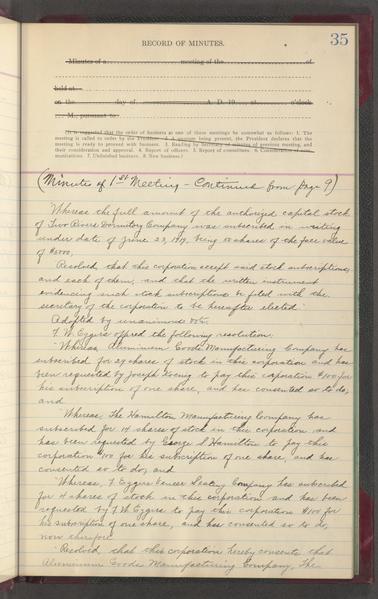 35
RECORD OF MINUTES.
Minutes of a meeting of the of
held at
on the day of A. D. 19 at o'clock
M., pursuant to
(It is suggested that the order of business at one of these meetings be somewhat as follows: 1. The
meeting is called to order by the President. 2. A quorum being present, the President declares that the
meeting is ready to proceed with business. 3. Reading by Secretary of minutes of previous meeting, and
their consideration and approval. 4. Report of officers. 5. Report of committees. 6. Consideration of com-
munications. 7. Unfinished business. 8. New business.)
(Minutes of 1st Meeting - Continued from page 9)
Whereas the full amount of the authorized capital stock
of Two Rivers Dormitory Company was subscribed in writing
under date of June 23, 1919, being shares of the face value
of
Resolved, that this corporation accept said stock subscriptions,
and each of them, and that the written instrument
evidencing such stock subscriptions be filed with the
secretary of the corporation to be hereafter elected.
Adopted by unanimous vote.
F. W. Eggers offered the following resolution:
"Whereas Aluminum Goods Manufacturing Company has
subscribed for 29 shares of stock in this corporation and has
been requested by Joseph Koenig to pay this corporation $100 for
his subscription of one share, and has consented so to do,
and
Whereas, The Hamilton Manufacturing Company has
subscribed for 14 shares of stock in this corporation and
has been requested by George S Hamilton to pay this
corporation $100 for his subscription of one share, and has
consented so to do, and
Whereas, F Eggers Veneer Seating Company has subscribed
for 4 shares of stock in this corporation and has been
requested by F. W. Eggers to pay this corporation $100 for
his subscription of one share, and has consented so to do,
now therefore
Resolved, that this corporation hereby consents that
Aluminum Goods Manufacturing Company, The